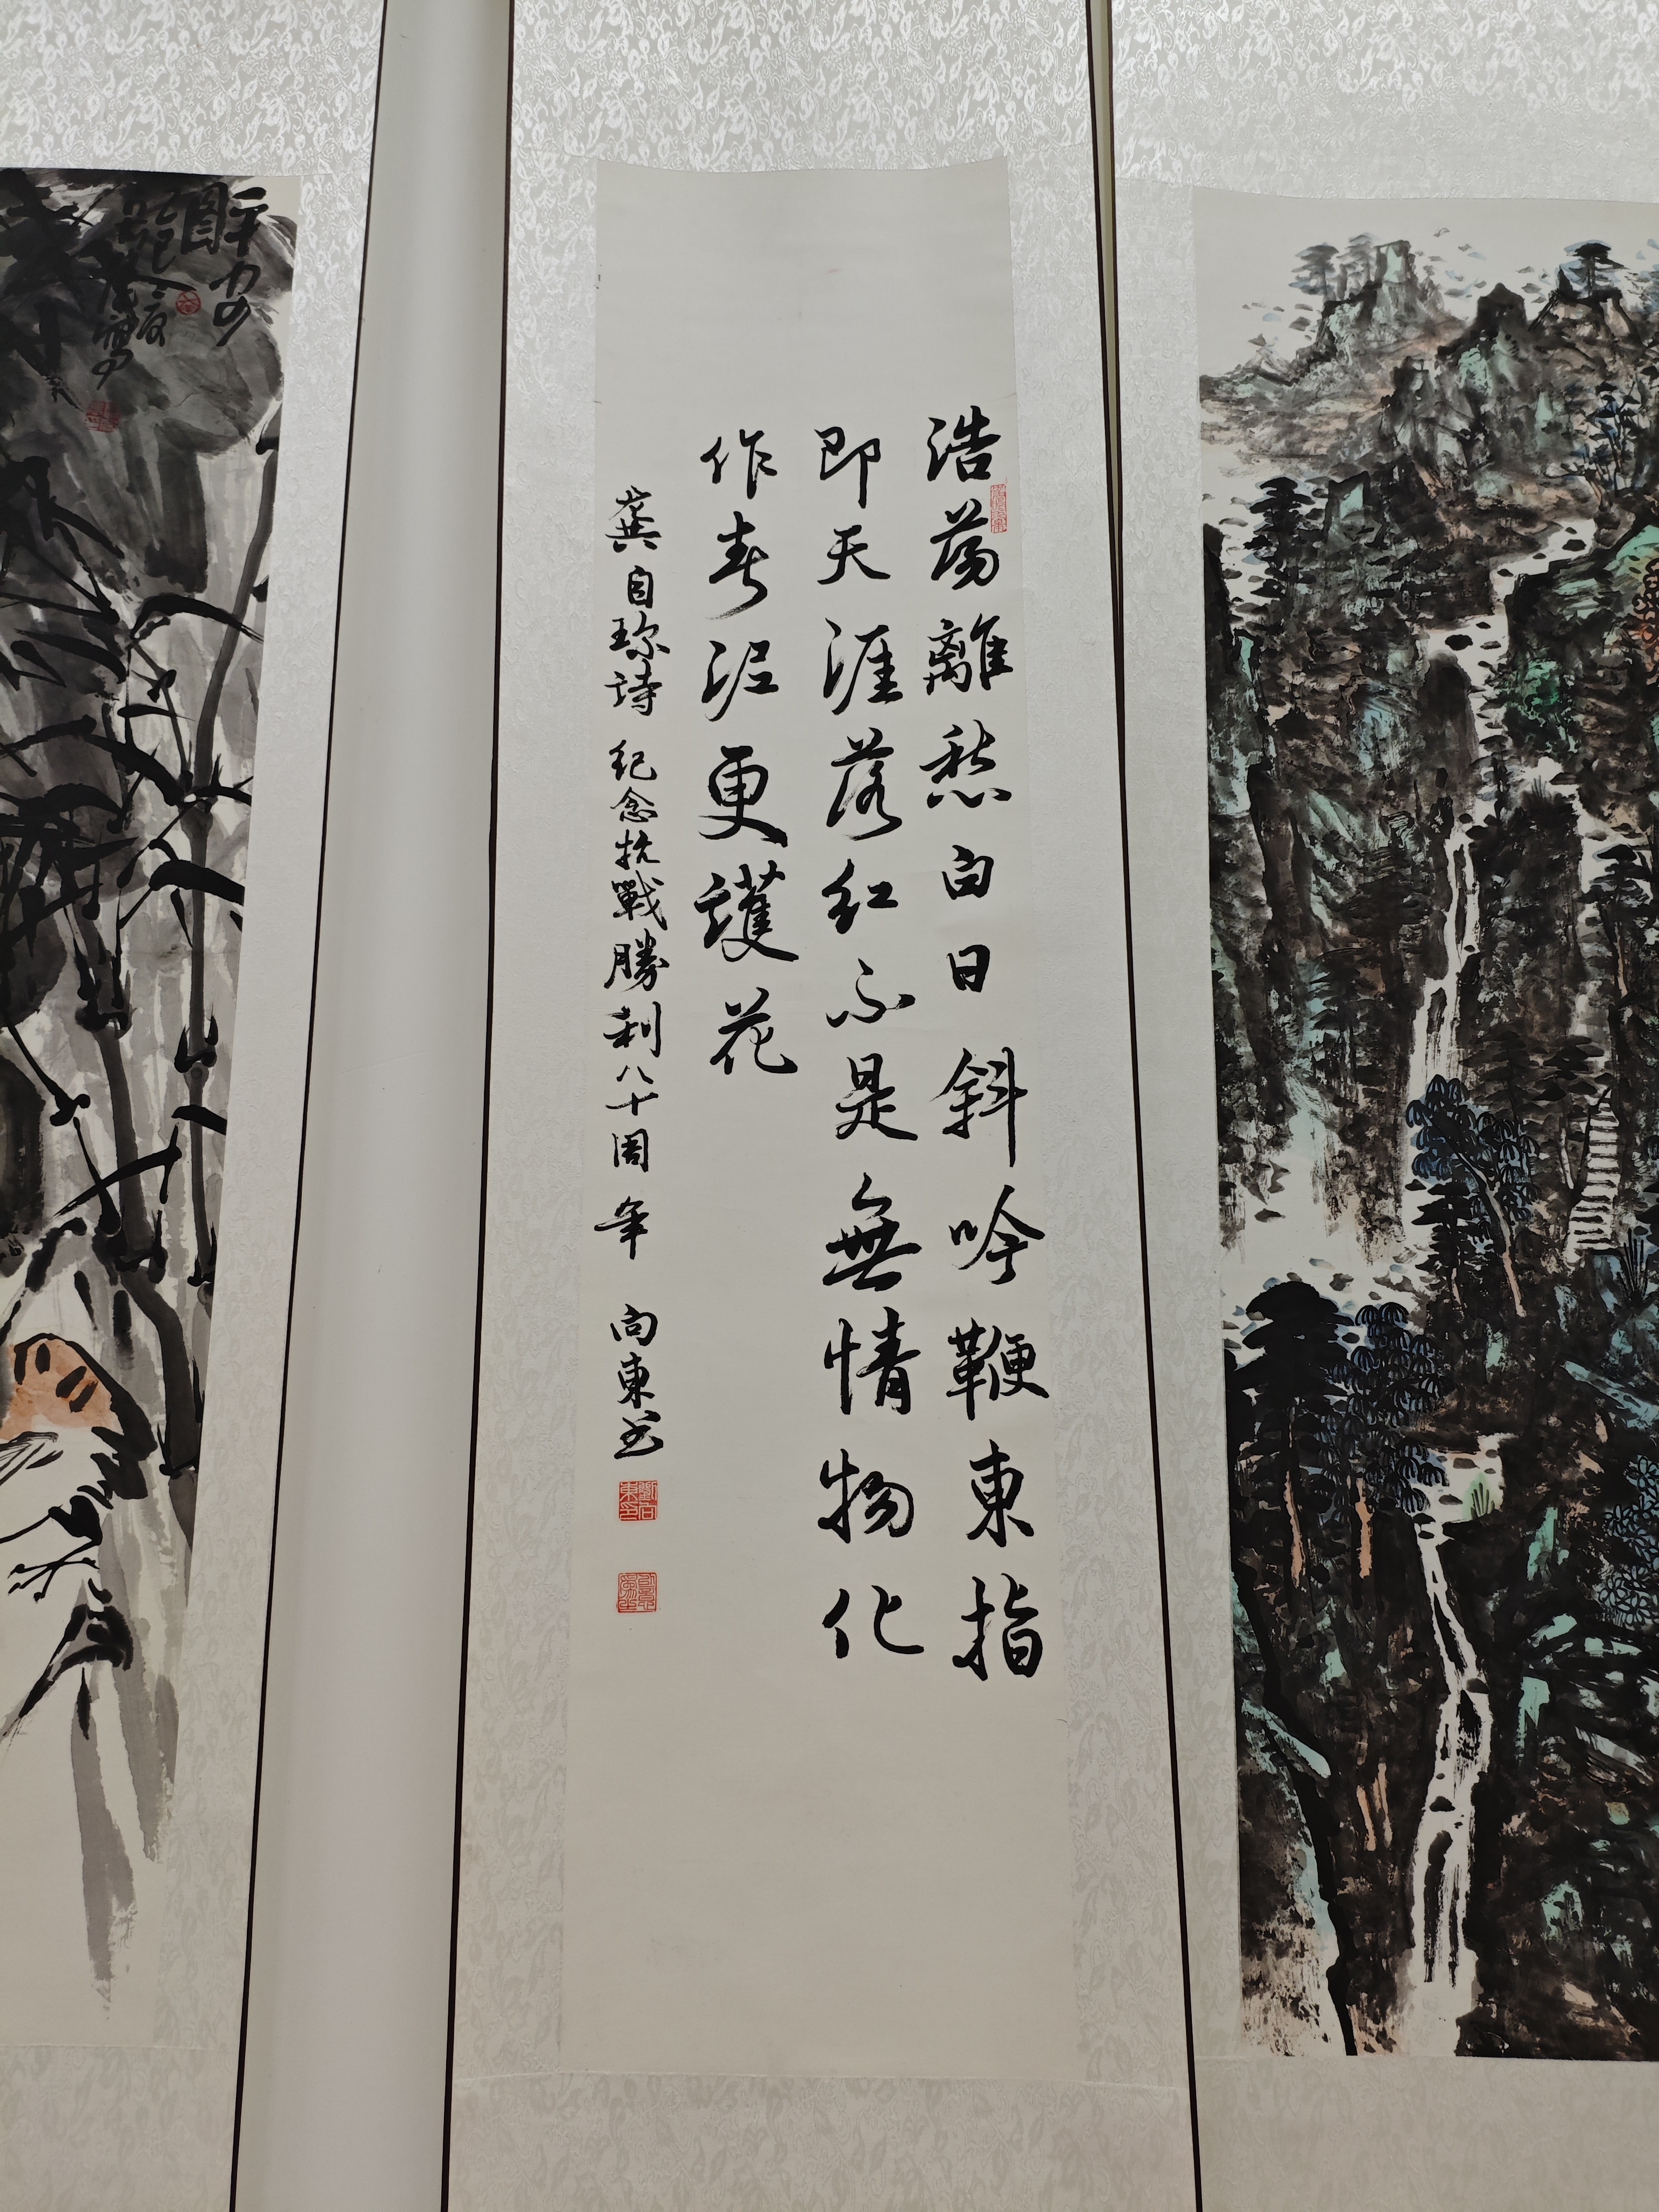 浩荡離愁白日斜吟鞭東指
即天涯落红不是無情物化
作春泥更護花
龚自珍詩 纪念抗戰勝利八十周年 向東书